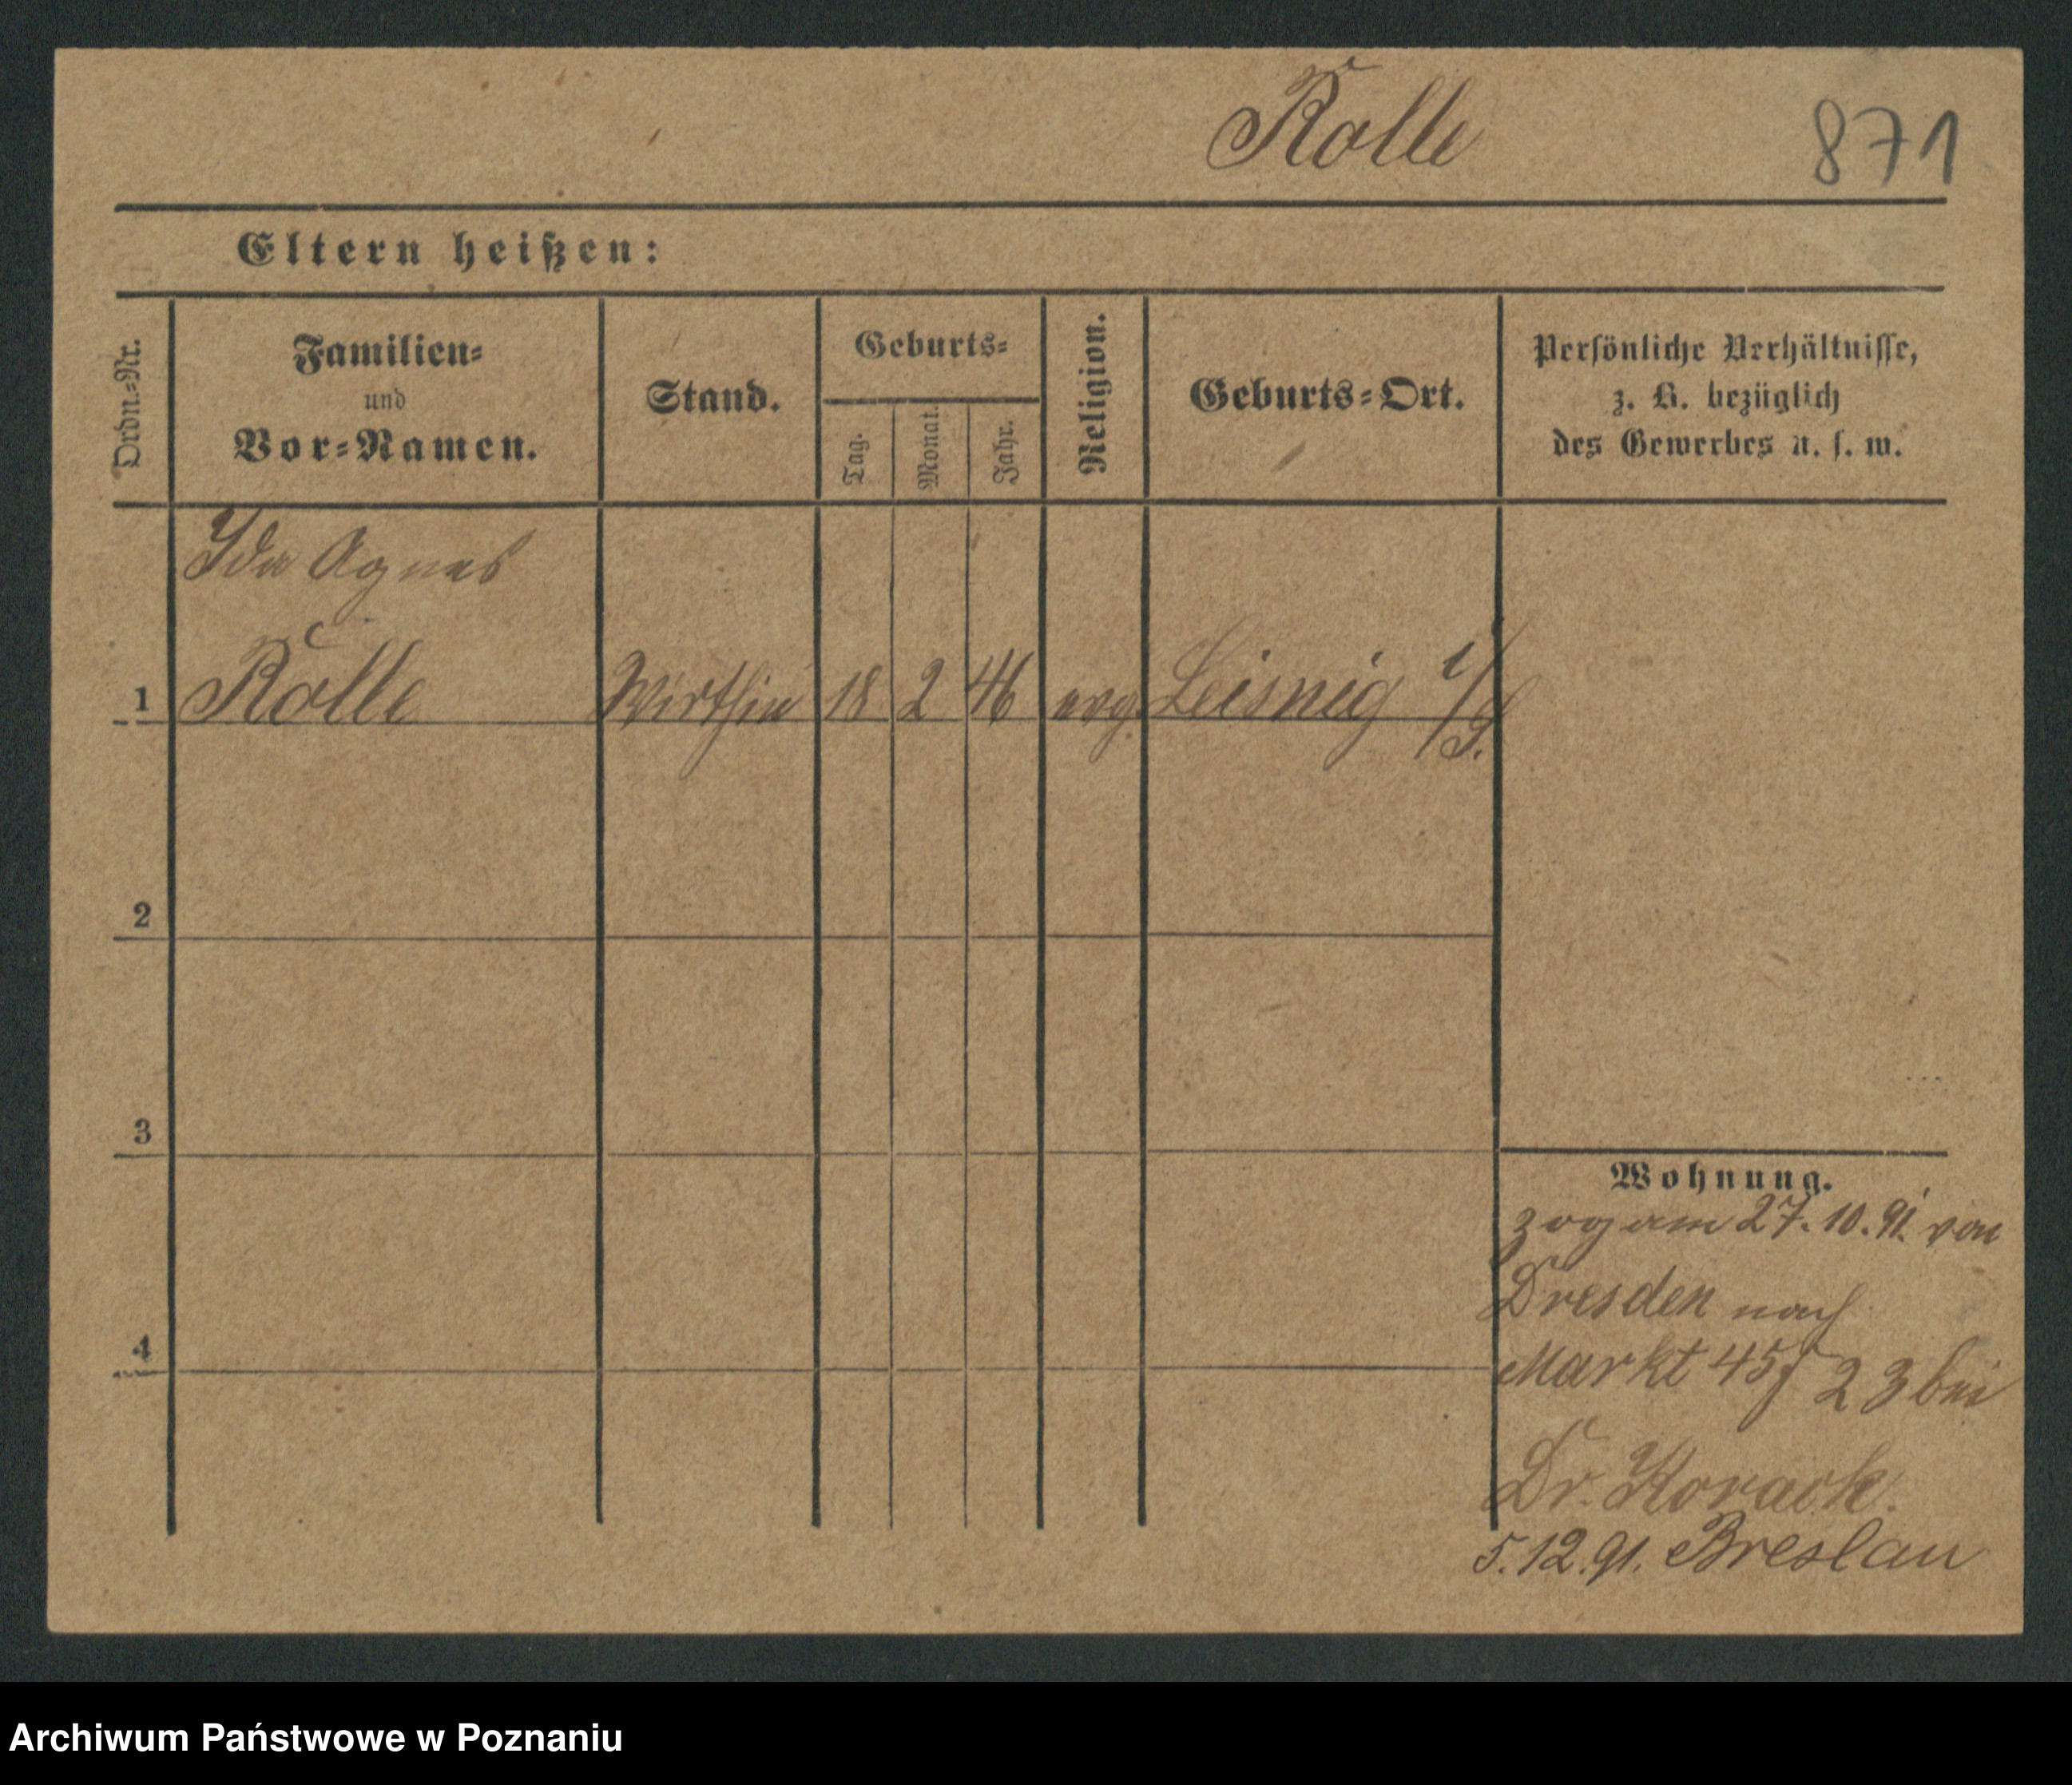 Rolle
871
Eltern heißen:
Ordn.=Nr.
Familien=
und
Vor=Namen.
Stand.
Geburts=
Tag.
Monat.
Jahr.
Religion.
Geburts=Ort.
Persönliche Verhältnisse,
z. B. bezüglich
des Gewerbes u. s. w.
Ida Agnes
1 Rolle Wirthin 18 2 46 evg. Leisnig i/S.
2
3
4
Wohnung.
zog am 27. 10. 91. von
Dresden nach
Markt 45/ 2 3 bei
Dr. Korach.
5. 12. 91. Breslau
Archiwum Państwowe w Poznaniu